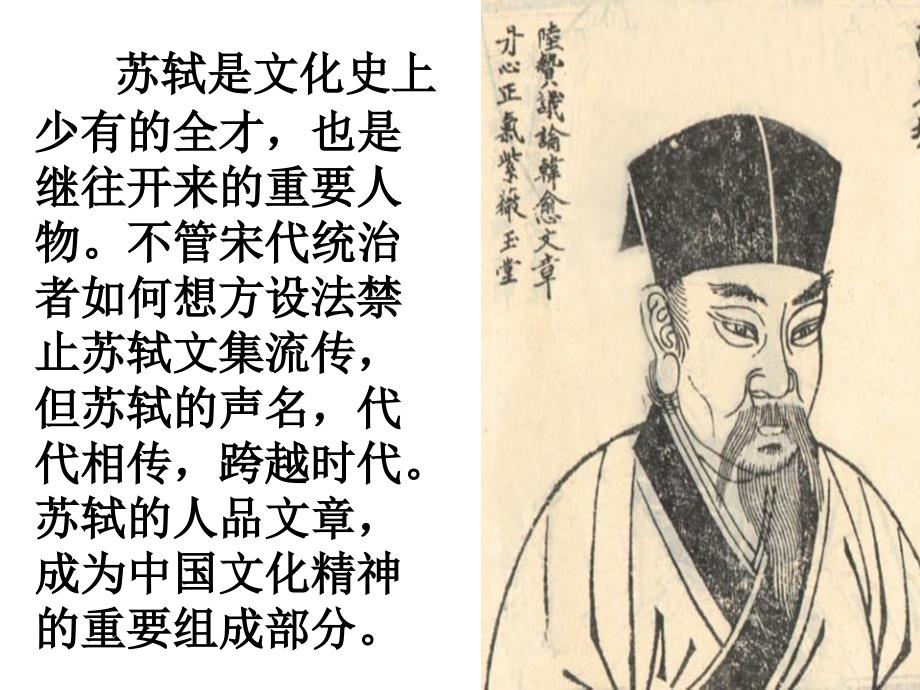 苏轼是文化史上
少有的全才，也是
继往开来的重要人
物。不管宋代统治
者如何想方设法禁
止苏轼文集流传，
但苏轼的声名，代
代相传，跨越时代。
苏轼的人品文章，
成为中国文化精神
的重要组成部分。
陸贄議論韓愈文章
丹心正氣紫薇玉堂